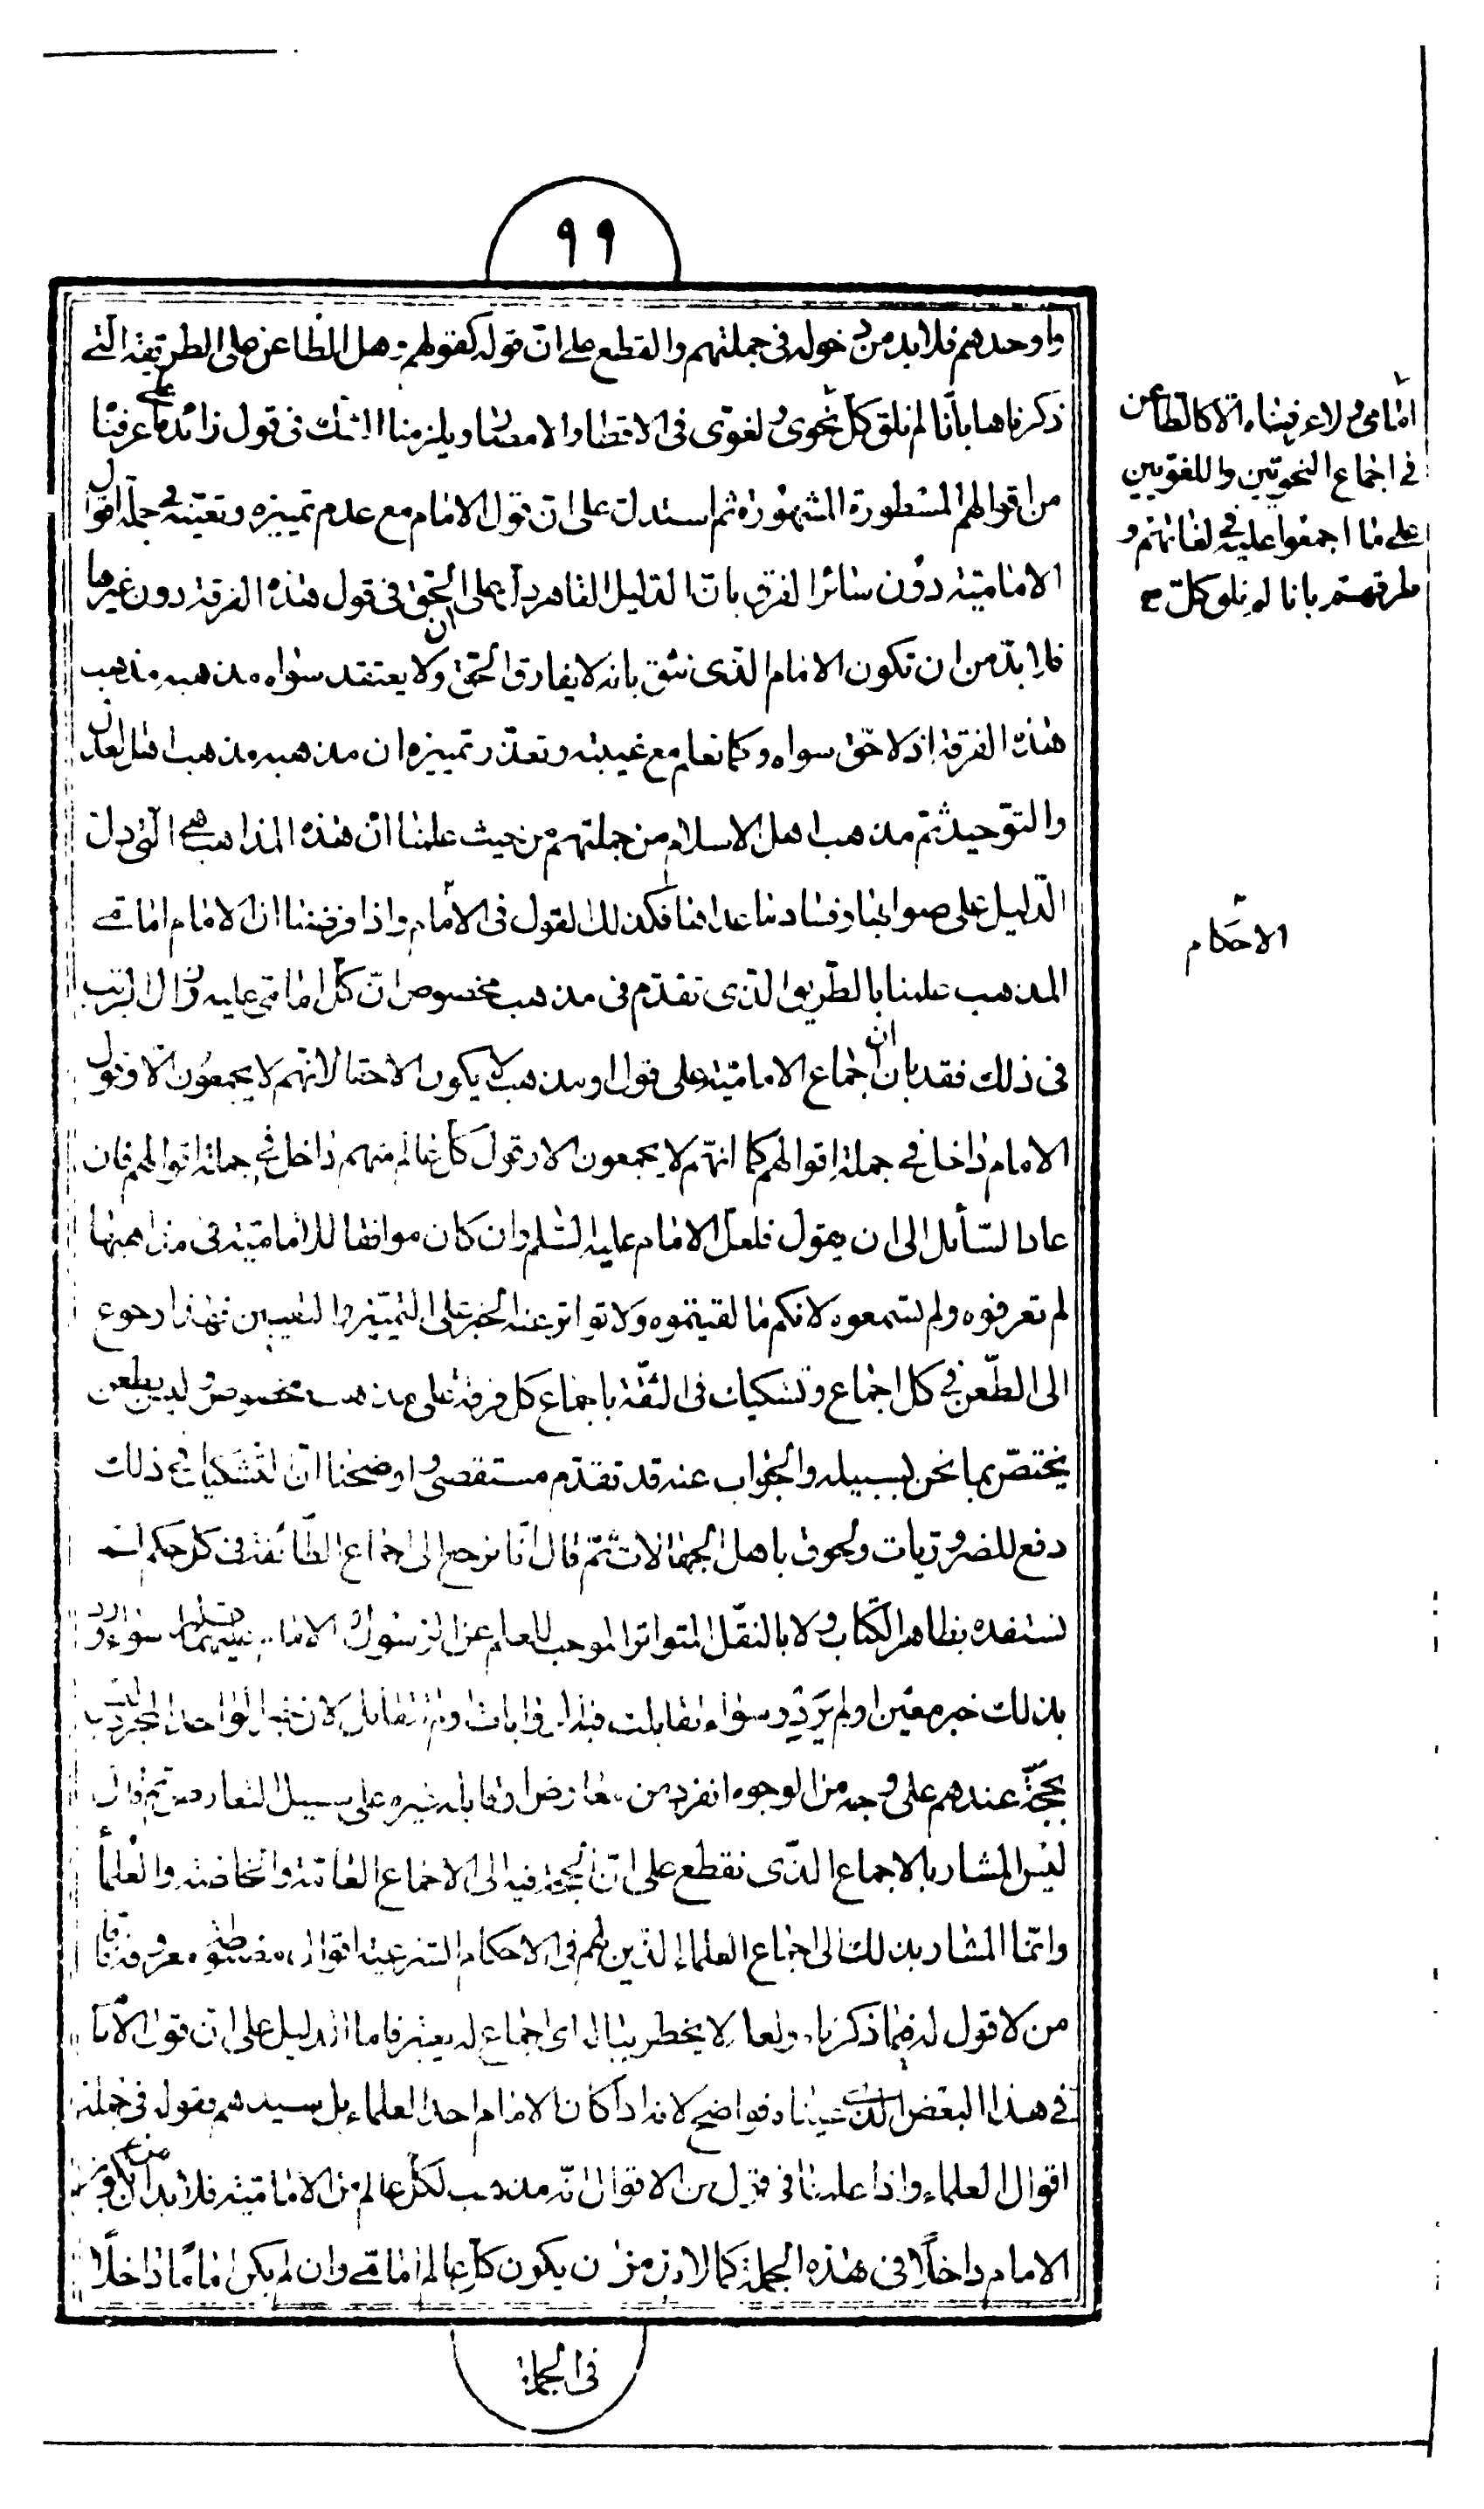 ٩٩
واوحدهم فلا بد من دخوله فى جملتهم والقطع على ان قوله كقولهم وهل الطاعن على الطريقة التى
ذكرناها بانا لم نلق كل نحوى ولغوى فى الاقطار والامصار ويلزمنا الشك فى قول زائد على ما عرفنا
من اقوالهم المسطورة المشهورة ثم استدل على ان قول الامام مع عدم تمييزه وتعينه فى جملة اقوال
الامامية دون سائر الفرق بان الدليل القاهر دل على ان الحق فى قول هذه الفرقة دون غيرها
فلا بد من ان تكون الامام الذى نثق بانه لا يفارق الحق ولا يعتقد سواه مذهبه مذهب
هذه الفرقة اذ لا حق سواه وكما نعلم مع غيبته وتعذر تمييزه ان مذهبه مذهب اهل العدل
والتوحيد ثم مذهب اهل الاسلام من جملتهم من حيث علمنا ان هذه المذاهب هى التى دل
الدليل على صوابها وفساد ما عداها فكذلك القول فى الامام واذا فرضنا ان الامام امامى
المذهب علمنا بالطريق الذى تقدم فى مذهب مخصوص ان كل امامى عليه زال الريب
فى ذلك فقد بان ان اجماع الامامية على قول او مذهب لا يكون الا حقا لانهم لا يجمعون الا وقول
الامام داخل فى جملة اقوالهم كما انهم لا يجمعون الا وقول كل عالم منهم داخل فى جملة اقوالهم فان
عاد السائل الى ان يقول فلعل الامام عليه السلم وان كان موافقا للامامية فى مذاهبها
لم تعرفوه ولم تسمعوه لانكم ما لقيتموه ولا تواتر عنه الخبر على التمييز والتعيين فهذا رجوع
الى الطعن فى كل اجماع وتشكيك فى الثقة باجماع كل فرقة على مذهب مخصوص وليس بطعن
يختص بما نحن بسبيله والجواب عنه قد تقدم مستقصى واوضحنا ان التشكيك فى ذلك
دفع للضروريات ولحوق باهل الجهالات ثم قال انا نرجع الى اجماع الطائفة فى كل حكم لم
نستفده بظاهر الكتاب ولا بالنقل المتواتر الموجب للعلم عن الرسول او الامام سواء ورد
بذلك خبر معين او لم يرد وسواء تقابلت فيه الروايات او لم تتقابل لان خبر الواحد المجرد ليس
بحجة عندهم على وجه من الوجوه انفرد من معارض او قابله غيره على سبيل التعارض ثم قال
ليس المشار بالاجماع الذى نقطع على ان الحجة فيه الى الاجماع العامة والخاصة والعلماء
وانما المشار بذلك الى اجماع العلماء الذين لهم فى الاحكام الشرعية اقوال مضبوطة معروفة فاما
من لا قول له فيما ذكرناه ولعله لا يخطر ببال اى اجماع له يعتبر فاما الدليل على ان قول الامام
فى هذا البعض الذى عيناه فواضح لانه اذا كان الامام احد العلماء بل سيدهم فقوله فى جملة
اقوال العلماء واذا علمنا فى قول من الاقوال انه مذهب لكل عالم من الامامية فلا بد من ان يكون
الامام داخلا فى هذه الجملة كما لا بد من ان يكون كل عالم امامى وان لم يكن اماما داخلا
فى الجملة
امامى ولا عرفناه الا كالطاعن
فى اجماع النحويين واللغويين
على ما اجمعوا عليه فى لغاتهم و
طرقهم بانا لم نلق كل
الاحكام